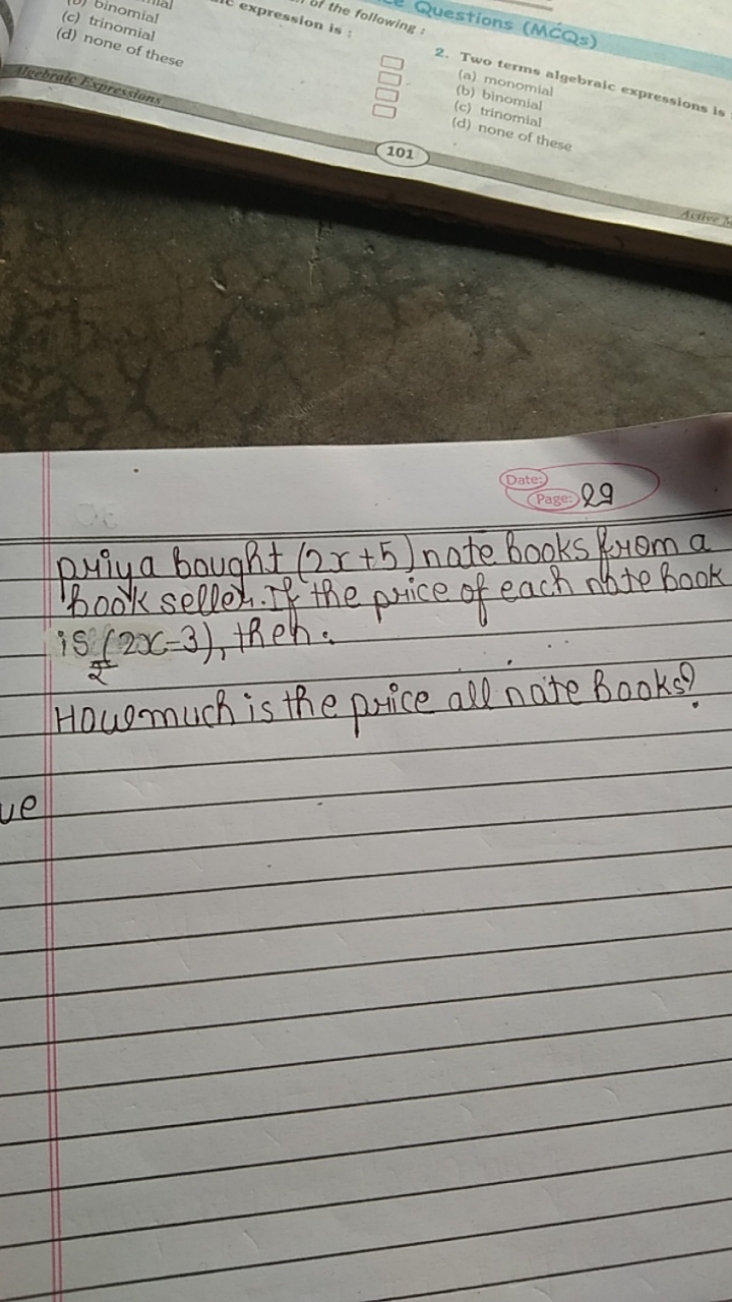 binomial
(c) trinomial
(d) none of these
expression is :
of the following :
Questions (MCQs)
2. Two terms algebraic expressions is
(a) monomial
(b) binomial
(c) trinomial
(d) none of these
Algebraic Expressions
101
Active
Date:
Page: 29
priya bought (2x+5) note books from a
book seller. If the price of each note book
is (2x-3), then.
How much is the price all note Books?
ue